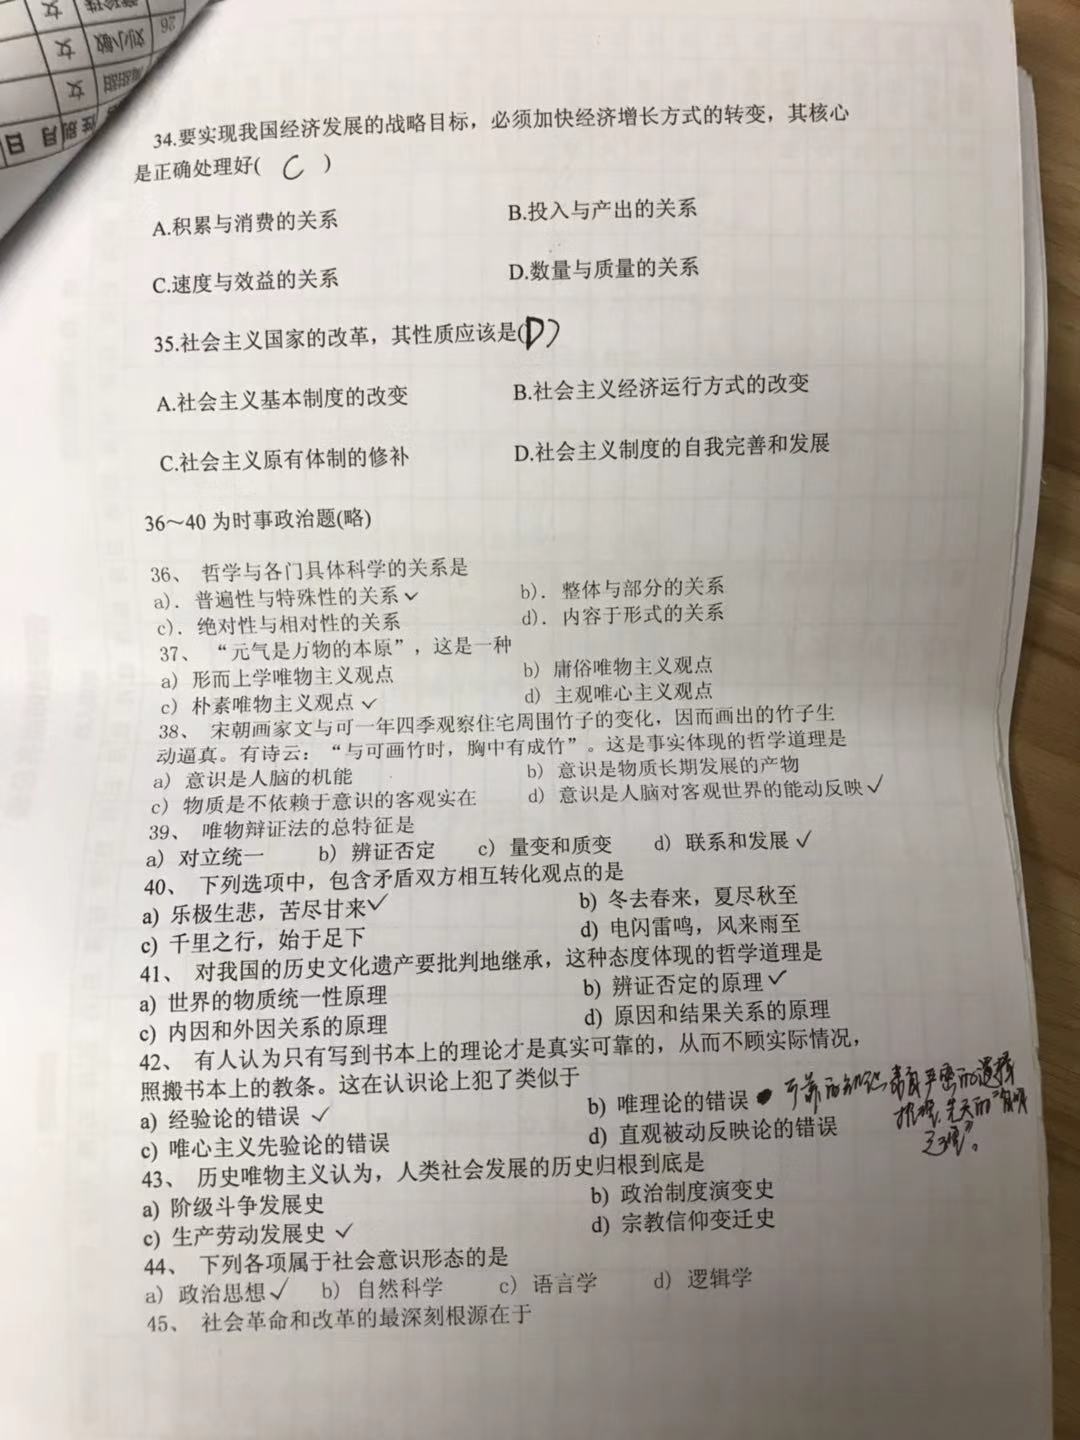 26
刘小敏
女
女
女
性别
月
日
34.要实现我国经济发展的战略目标，必须加快经济增长方式的转变，其核心
是正确处理好( C )
A.积累与消费的关系 B.投入与产出的关系
C.速度与效益的关系 D.数量与质量的关系
35.社会主义国家的改革，其性质应该是(D)
A.社会主义基本制度的改变 B.社会主义经济运行方式的改变
C.社会主义原有体制的修补 D.社会主义制度的自我完善和发展
36～40 为时事政治题(略)
36、 哲学与各门具体科学的关系是
a). 普遍性与特殊性的关系✓ b). 整体与部分的关系
c). 绝对性与相对性的关系 d). 内容于形式的关系
37、 “元气是万物的本原”，这是一种
a) 形而上学唯物主义观点 b) 庸俗唯物主义观点
c) 朴素唯物主义观点✓ d) 主观唯心主义观点
38、 宋朝画家文与可一年四季观察住宅周围竹子的变化，因而画出的竹子生
动逼真。有诗云：“与可画竹时，胸中有成竹”。这是事实体现的哲学道理是
a) 意识是人脑的机能 b) 意识是物质长期发展的产物
c) 物质是不依赖于意识的客观实在 d) 意识是人脑对客观世界的能动反映✓
39、 唯物辩证法的总特征是
a) 对立统一 b) 辨证否定 c) 量变和质变 d) 联系和发展✓
40、 下列选项中，包含矛盾双方相互转化观点的是
a) 乐极生悲，苦尽甘来✓ b) 冬去春来，夏尽秋至
c) 千里之行，始于足下 d) 电闪雷鸣，风来雨至
41、 对我国的历史文化遗产要批判地继承，这种态度体现的哲学道理是
a) 世界的物质统一性原理 b) 辨证否定的原理✓
c) 内因和外因关系的原理 d) 原因和结果关系的原理
42、 有人认为只有写到书本上的理论才是真实可靠的，从而不顾实际情况，
照搬书本上的教条。这在认识论上犯了类似于
a) 经验论的错误 ✓ b) 唯理论的错误 可靠的知识 严密的逻辑
推理、先天的“自明
之理”。
c) 唯心主义先验论的错误 d) 直观被动反映论的错误
43、 历史唯物主义认为，人类社会发展的历史归根到底是
a) 阶级斗争发展史 b) 政治制度演变史
c) 生产劳动发展史 ✓ d) 宗教信仰变迁史
44、 下列各项属于社会意识形态的是
a) 政治思想✓ b) 自然科学 c) 语言学 d) 逻辑学
45、 社会革命和改革的最深刻根源在于